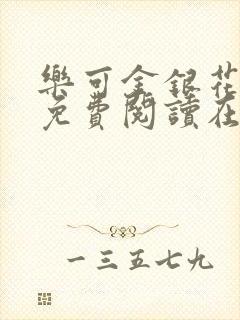 樂可金銀花
免費閱讀在
一三五七九